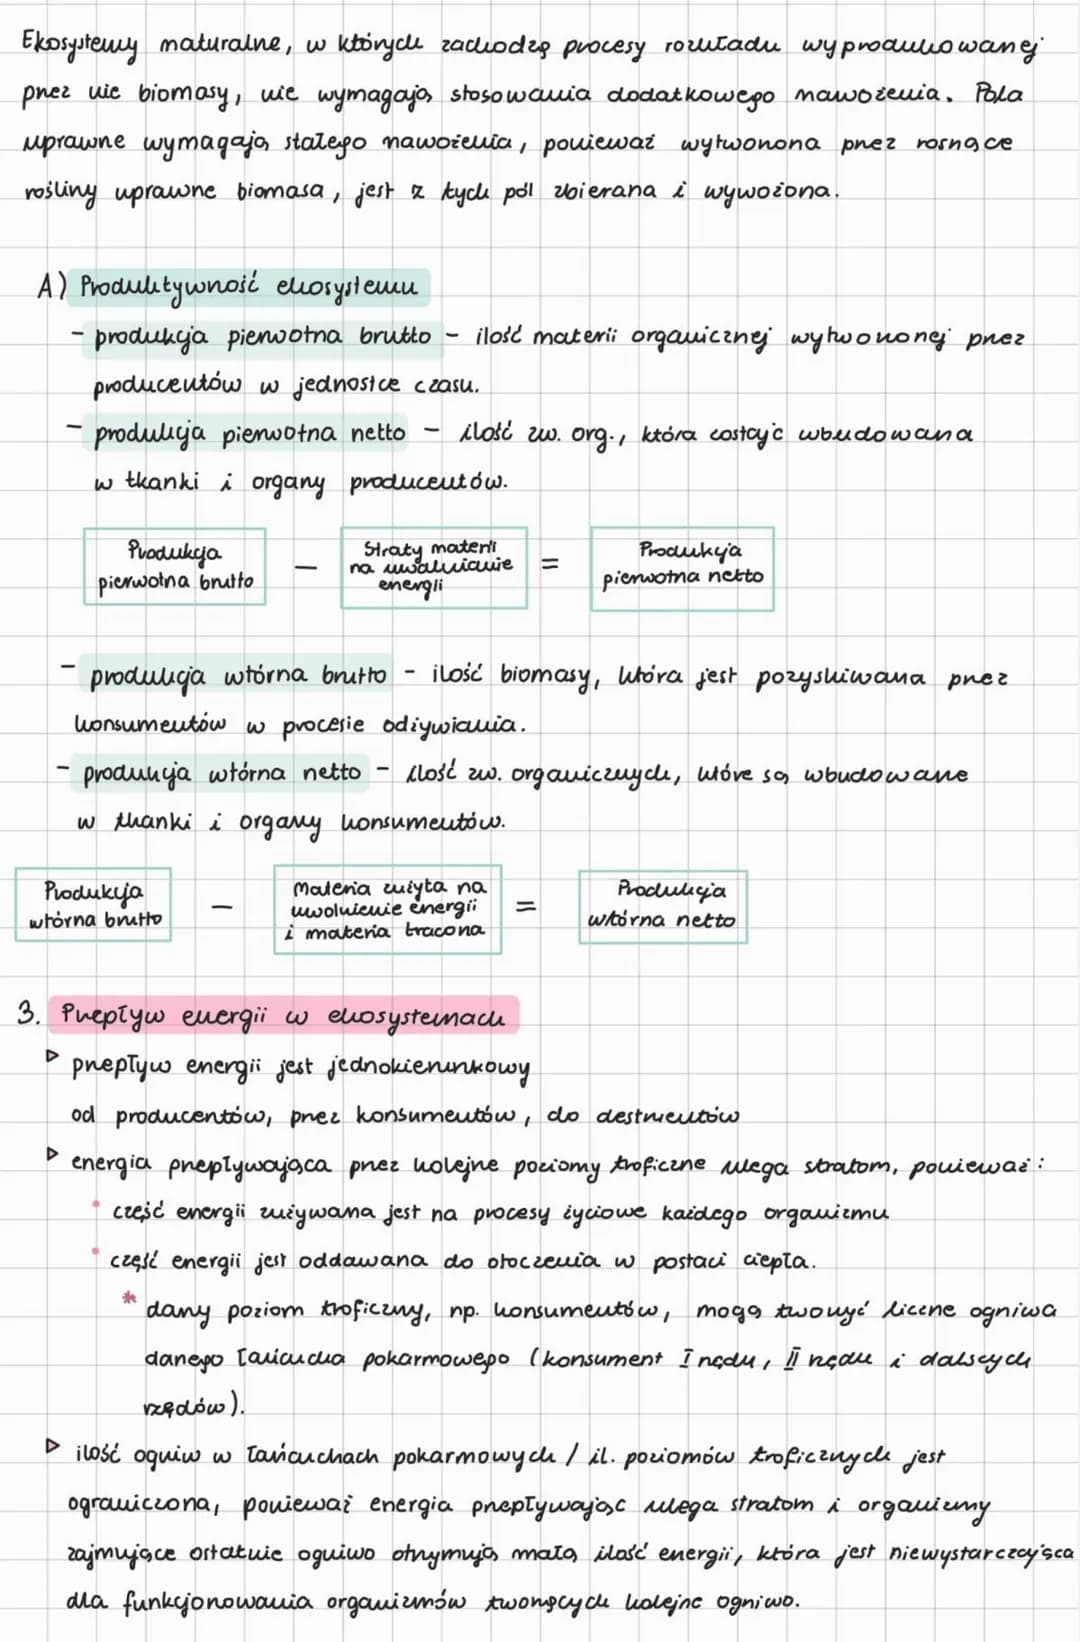 Ekosystemy naturalne, w których zachodzą procesy rozkładu wyprodukowanej
przez nie biomasy, nie wymagają stosowania dodatkowego nawożenia. Pola
uprawne wymagają stałego nawożenia, ponieważ wytworzona przez rosnące
rośliny uprawne biomasa, jest z tych pól zbierana i wywożona.
A) Produktywność ekosystemu
- produkcja pierwotna brutto - ilość materii organicznej wytworzonej przez
producentów w jednostce czasu.
- produkcja pierwotna netto - ilość zw. org., która zostaje wbudowana
w tkanki i organy producentów.
Produkcja pierwotna brutto - Straty materii na uwalnianie energii = Produkcja pierwotna netto
- produkcja wtórna brutto - ilość biomasy, która jest pozyskiwana przez
konsumentów w procesie odżywiania.
- produkcja wtórna netto - ilość zw. organicznych, które są wbudowane
w tkanki i organy konsumentów.
Produkcja wtórna brutto - Materia zużyta na uwolnienie energii i materia tracona = Produkcja wtórna netto
3. Przepływ energii w ekosystemach
▷ przepływ energii jest jednokierunkowy
od producentów, przez konsumentów, do destruentów
▷ energia przepływająca przez kolejne poziomy troficzne ulega stratom, ponieważ:
• część energii zużywana jest na procesy życiowe każdego organizmu
• część energii jest oddawana do otoczenia w postaci ciepła.
* dany poziom troficzny, np. konsumentów, mogą tworzyć liczne ogniwa
danego łańcucha pokarmowego (konsument I rzędu, II rzędu i dalszych
rzędów).
▷ ilość ogniw w łańcuchach pokarmowych / il. poziomów troficznych jest
ograniczona, ponieważ energia przepływając ulega stratom i organizmy
zajmujące ostatnie ogniwo otrzymują małą ilość energii, która jest niewystarczająca
dla funkcjonowania organizmów tworzących kolejne ogniwo.